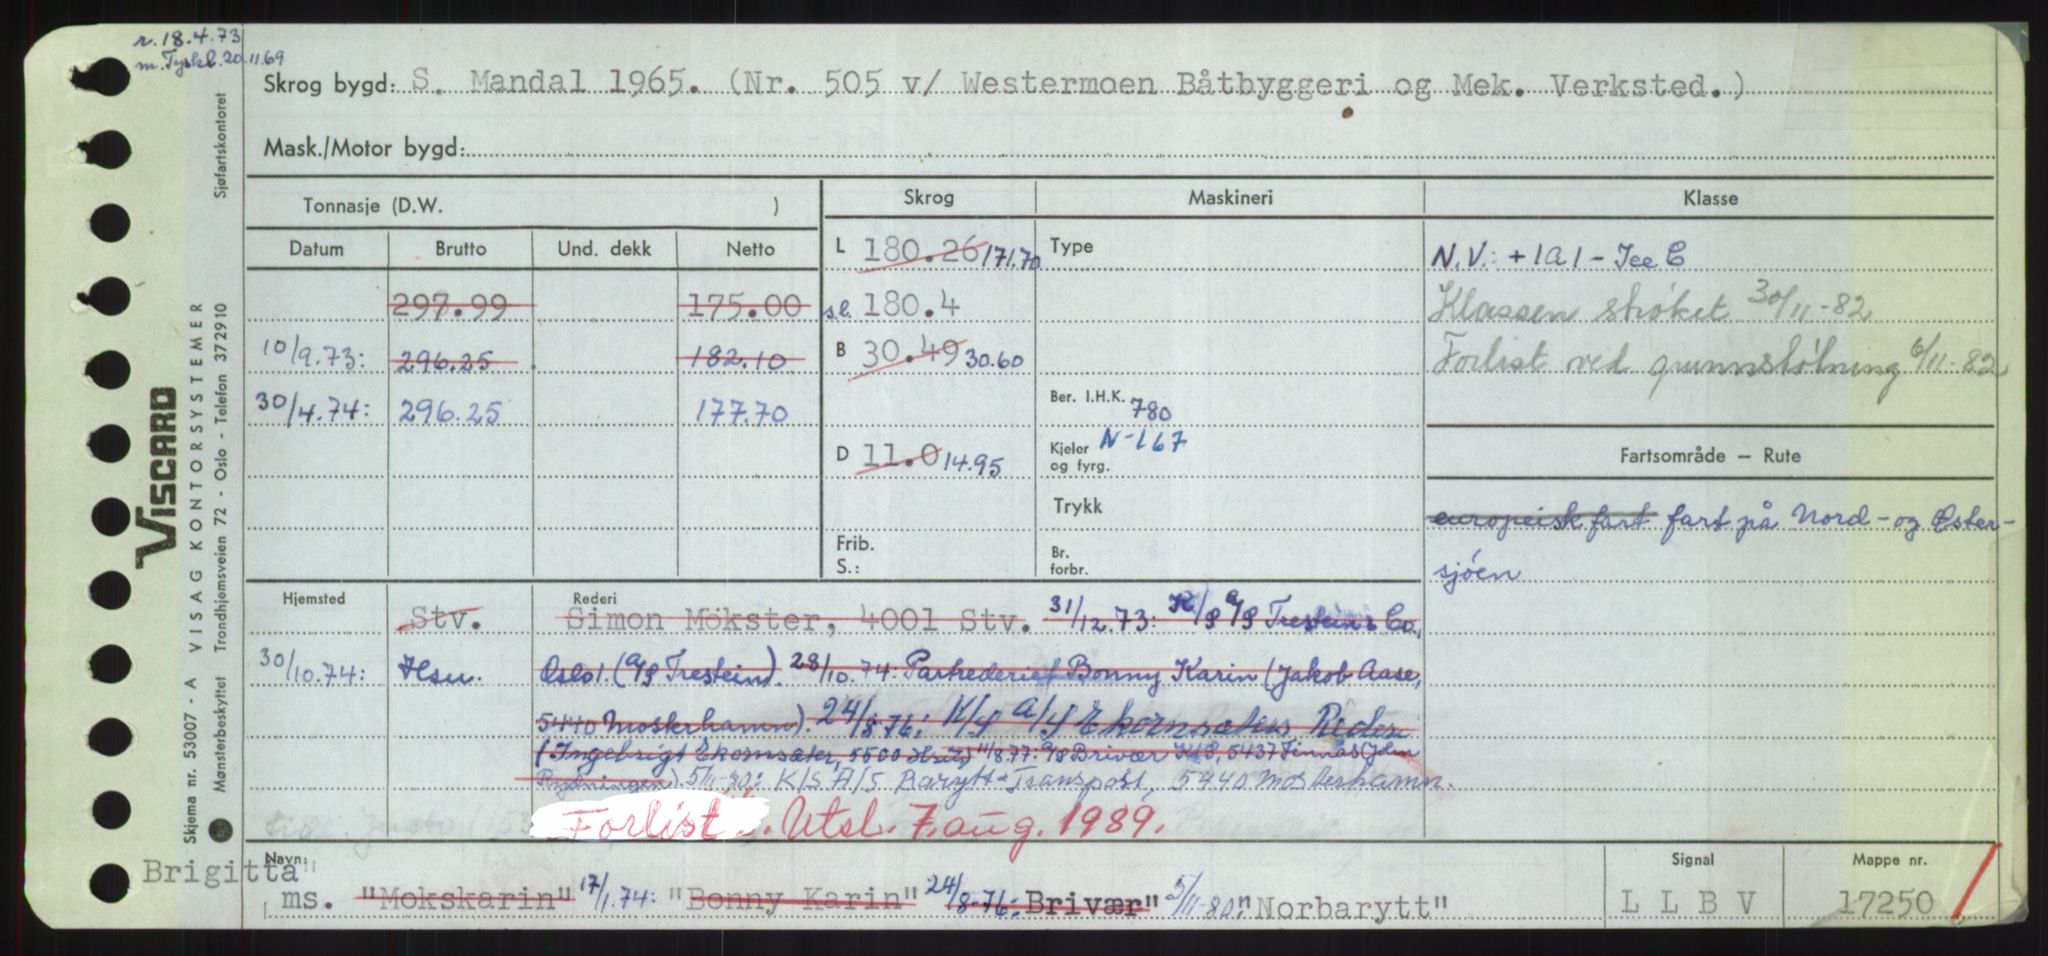 r. 18.4.73
m. Tyskl. 20.11.69
Skrog bygd: S. Mandal 1965. (Nr. 505 v/ Westermoen Båtbyggeri og Mek. Verksted.)
Mask./Motor bygd:
Tonnasje (D.W. )
Skrog
Maskineri
Klasse
Datum Brutto Und. dekk Netto
297.99 175.00
10/9.73: 296.25 182.10
30/4.74: 296.25 177.70
L 180.26 171.70
s.l. 180.4
B 30.49 30.60
D 11.0 14.95
Frib.
S.:
Type
Ber. I.H.K. 780
Kjeler og fyrg. N-167
Trykk
Br. forbr.
N.V.: +1A1 - Ice C
Klassen strøket 30/11-82
Forlist ved grunnstøtning 6/11-82
Fartsområde — Rute
europeisk fart fart på Nord- og Øster-
sjøen
Hjemsted
Rederi
Stv. Simon Mökster, 4001 Stv. 31/12.73: K/S A/S Trestein & Co.,
30/10.74: Hsu. Oslo 1. (A/S Trestein). 28/10.74: Partrederiet Bonny Karin (Jakob Aase,
5440 Mosterhamn). 24/8-76: K/S A/S Ekornsæters Rederi
(Ingebrigt Ekornsæter, 5500 Hsu.) 11/8.77: A/S Brivær K/S, 5437 Finnås (John
Rydningen). 5/11-80: K/S A/S Barytt-Transport, 5440 Mosterhamn.
Forlist. Utsl. 7. aug. 1989.
Navn:
Brigitta"
ms. "Mokskarin" 17/1.74: "Bonny Karin" 24/8-76: Brivær" 5/11-80: "Norbarytt"
Signal
L L B V
Mappe nr.
17250
VISCARD
Skjema nr. 53007 - A VISAG KONTORSYSTEMER
Mønsterbeskyttet Trondhjemsveien 72 - Oslo - Telefon 372910
Sjøfartskontoret